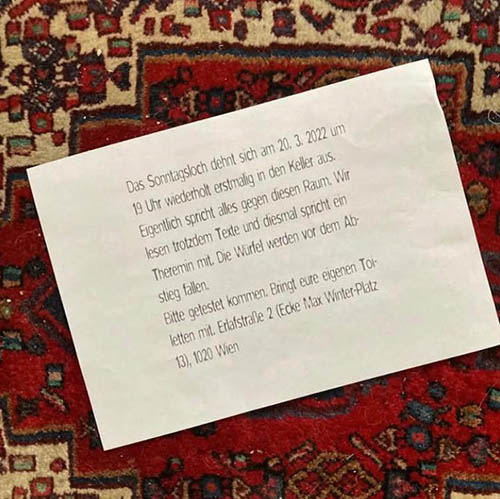 Das Sonntagsloch dehnt sich am 20. 3. 2022 um
19 Uhr wiederholt erstmalig in den Keller aus.
Eigentlich spricht alles gegen diesen Raum. Wir
lesen trotzdem Texte und diesmal spricht ein
Theremin mit. Die Würfel werden vor dem Ab-
stieg fallen.
Bitte getestet kommen. Bringt eure eigenen Toi-
letten mit. Erlafstraße 2 (Ecke Max Winter-Platz
13), 1020 Wien